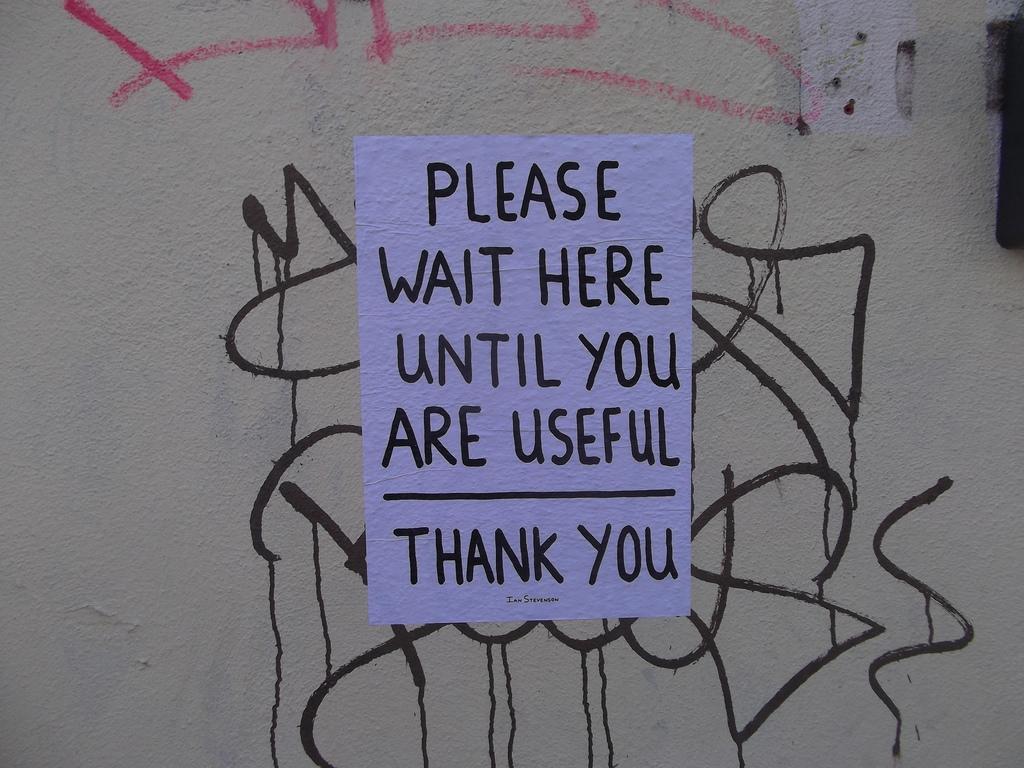 PLEASE
WAIT HERE
UNTIL YOU
ARE USEFUL
THANK YOU
IAN STEVENSON